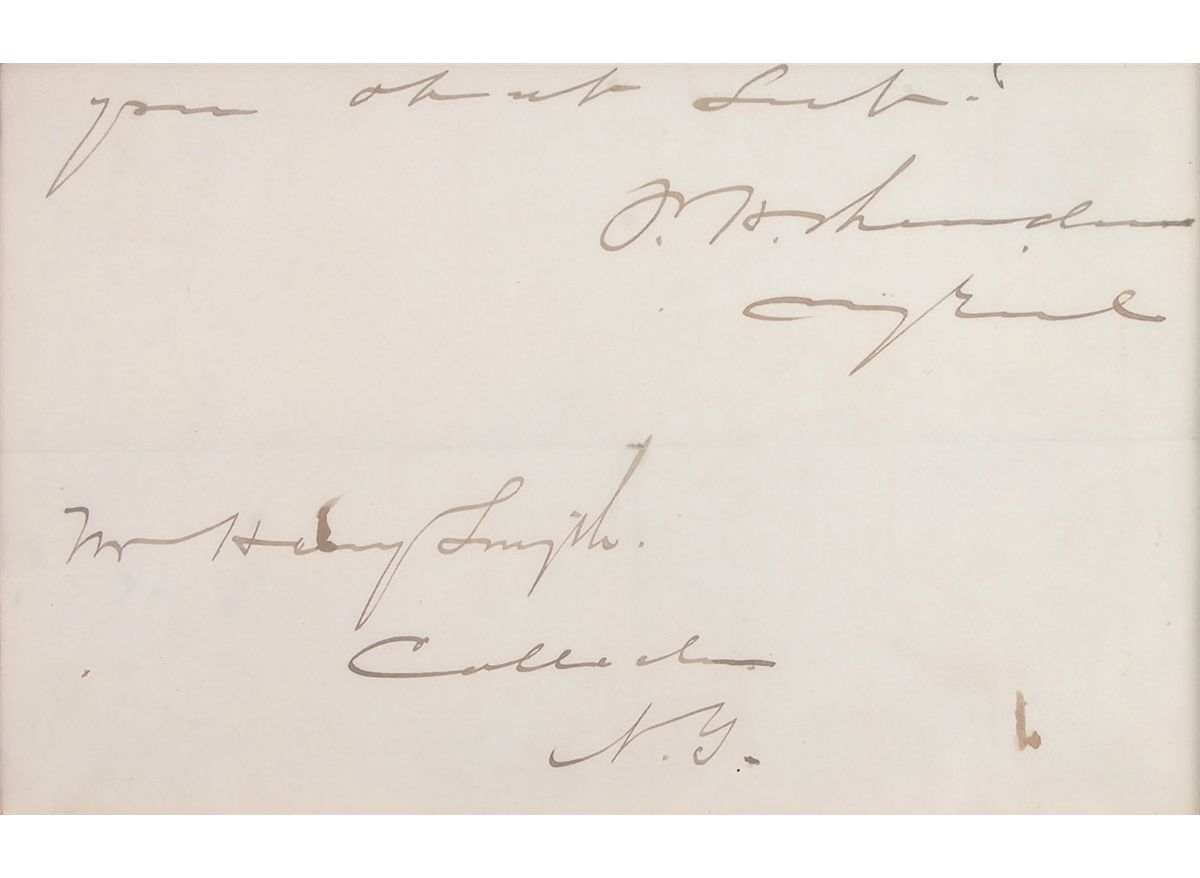 your obdt Servt.
P. H. Sheridan
Maj Genl
Mr Henry Smyth.
Collector
N. Y.